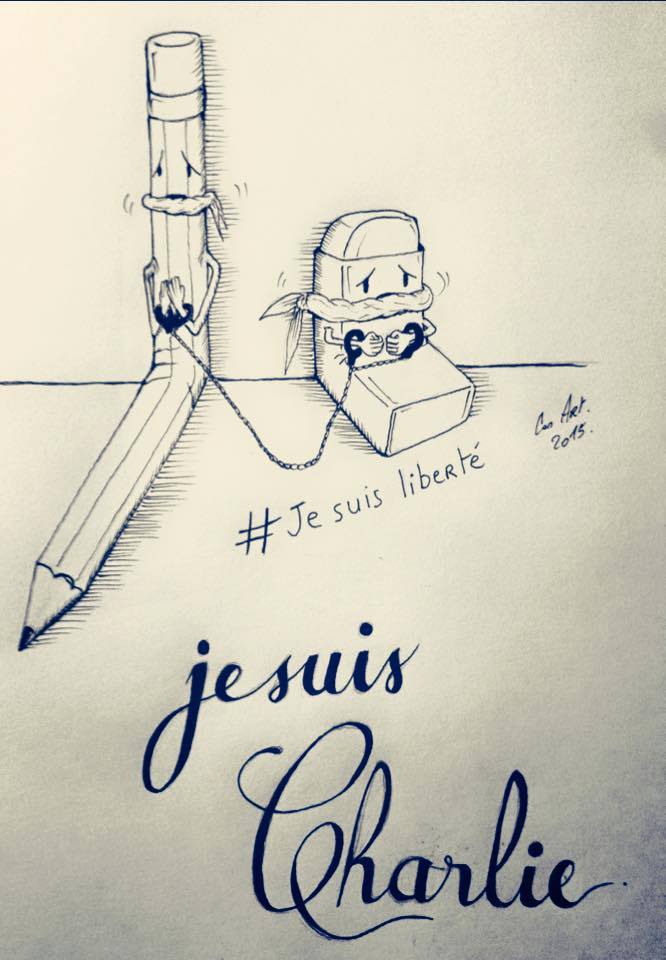 Art.
2015.
#Je suis liberté
je suis
Charlie